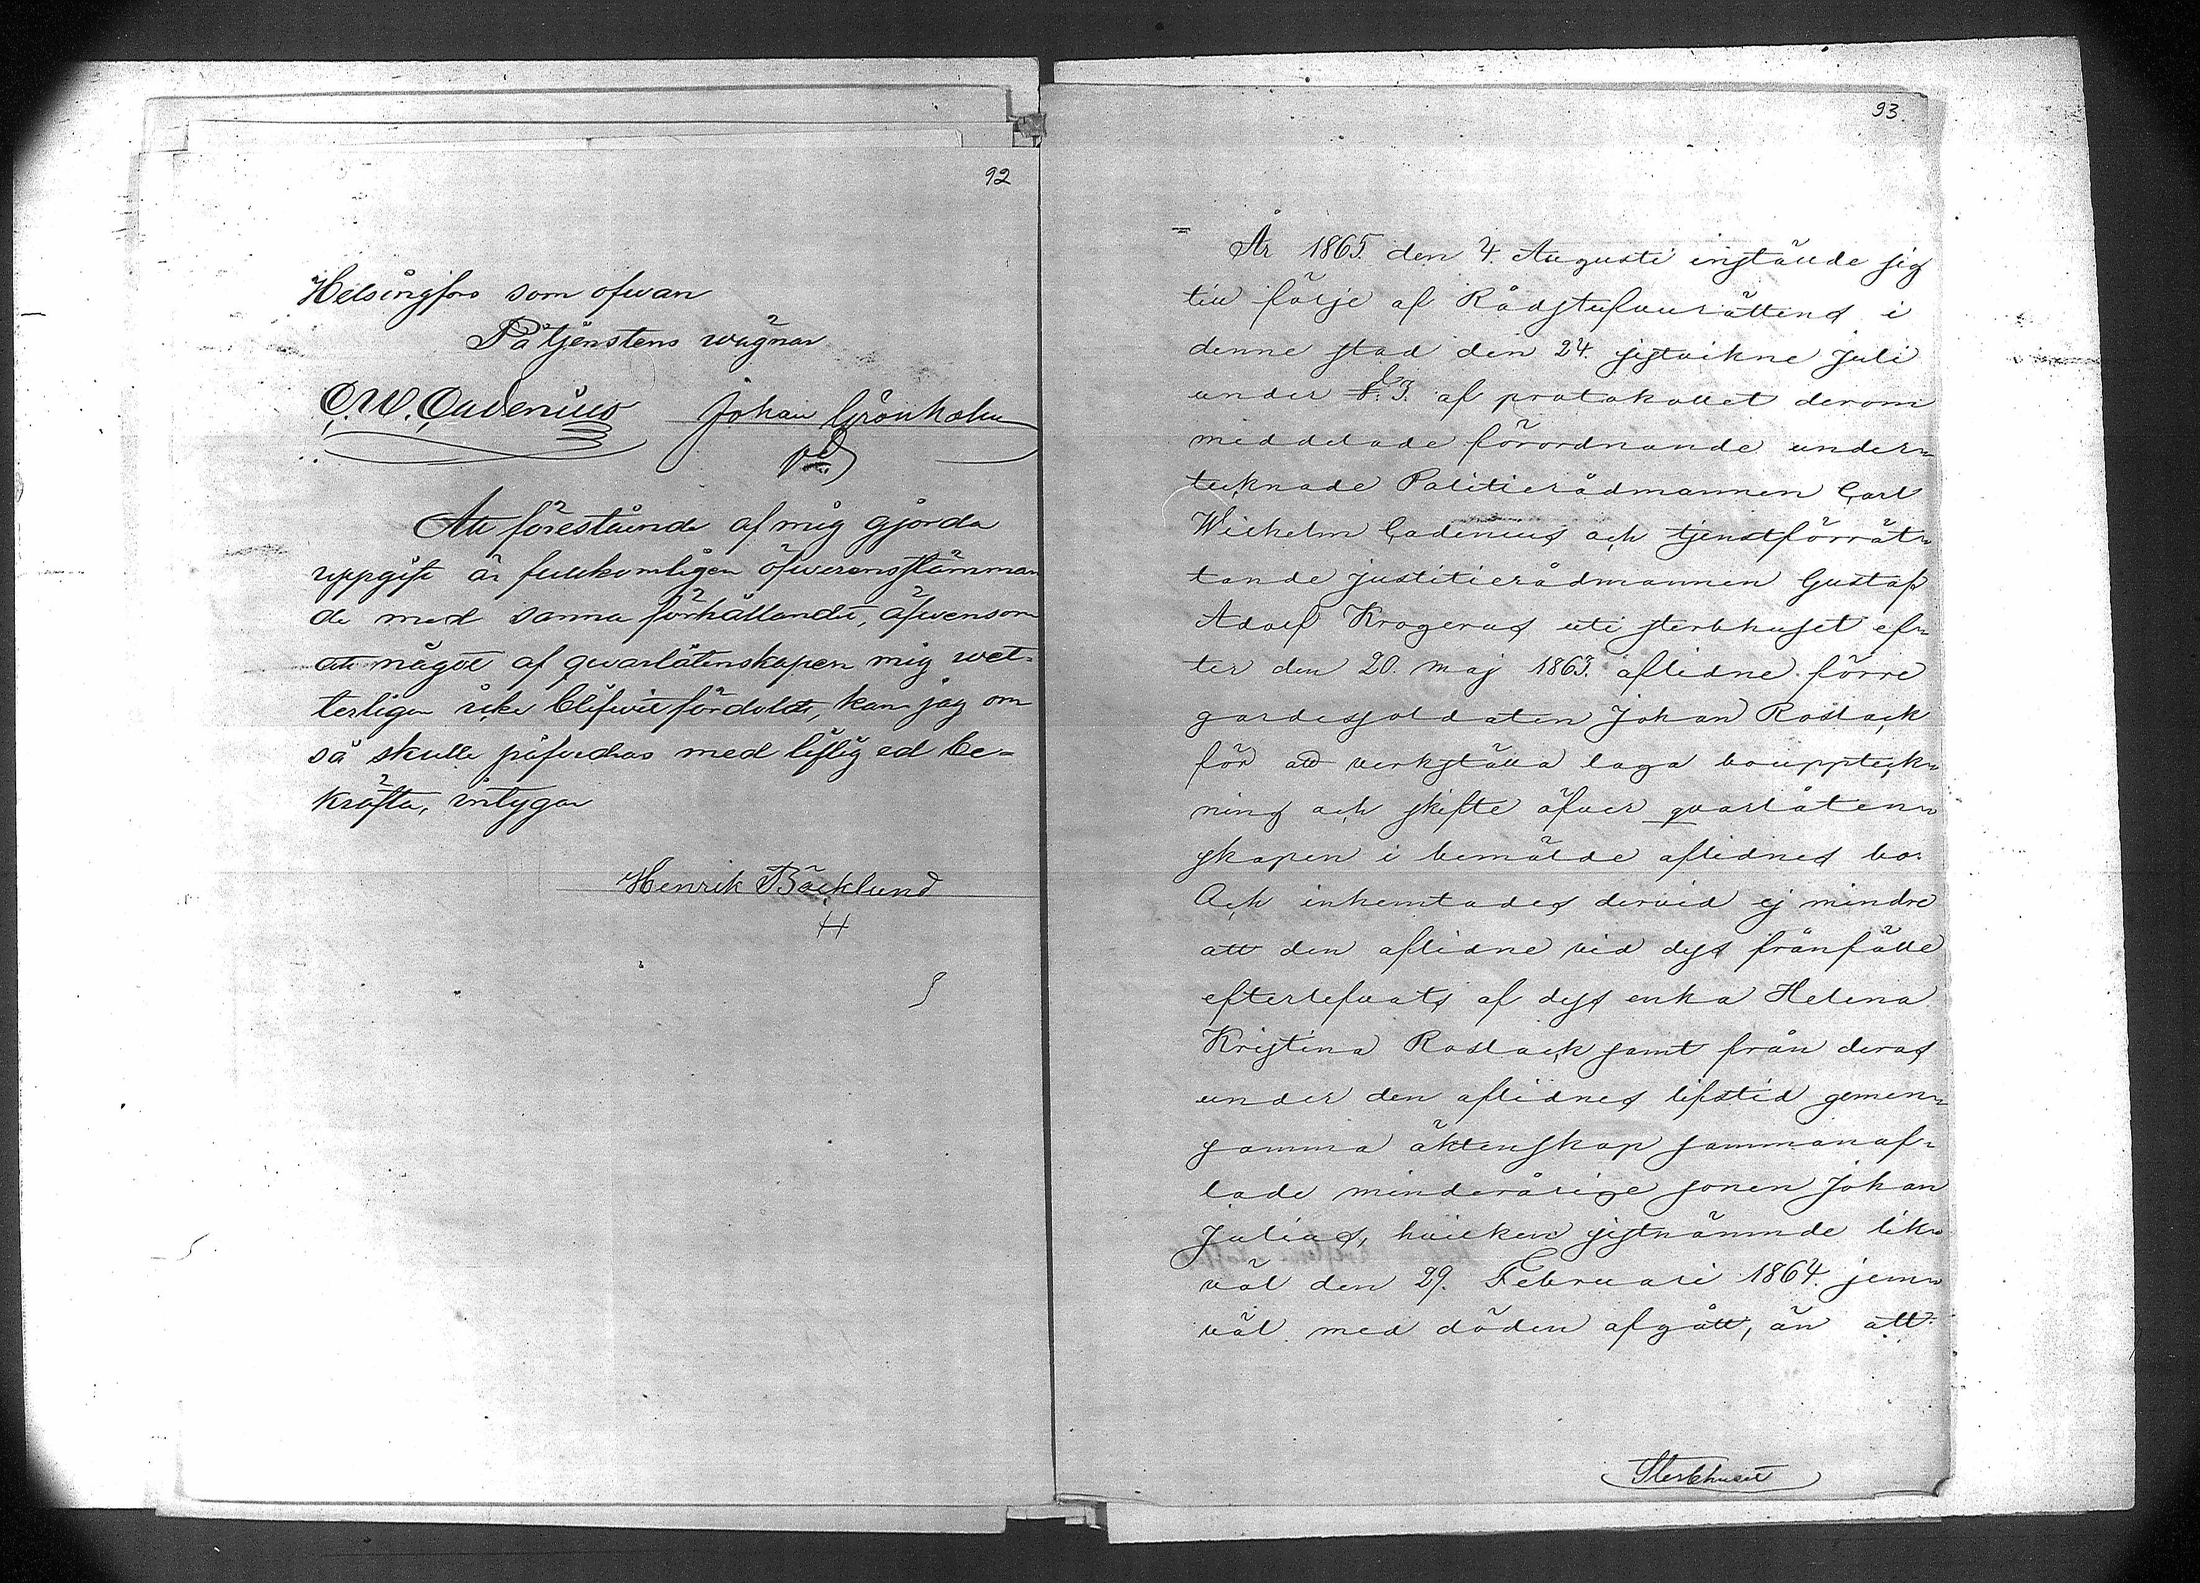 92
Helsingfors som ofwan
På tjenstens wägnar
C. W. Cadenius Johan Grönholm
Att förestående af mig gjorda
uppgift är fullkomligen öfwerensstämman
de med sanna förhållandet, äfwensom
att något af qwarlåtenskapen mig wet-
terligen icke blifwit fördoldt, kan jag om
så skulle påfordras med liflig ed be-
kräfta, intygar
Henrik Bäcklund
93.
År 1865 den 4. Augusti instälde sig
till följe af Rådstufvurättens i
denne stad den 24. sistvikne Juli
under § 3. af protokollet derom
meddelade förordnande under-
tecknade Politierådmannen Carl
Wilhelm Cadenius och tjenstförrät-
tande justitierådmannen Gustaf
Adolf Krogerus uti sterbhuset ef-
ter den 20. Maj 1863. aflidne förre
gardessoldaten Johan Rostack
för att verkställa laga bouppteck-
ning och skifte öfver qvarlåten-
skapen i bemälde aflidnes bo.
Och inhemtades dervid ej mindre
att den aflidne vid dess frånfälle
efterlefvats af dess enka Helena
Kristina Rostack samt från deras
under den aflidnes lifstid gemen-
samma äktenskap sammanaf-
lade minderårige sonen Johan
Julius, hvilken sistnämnde lik-
väl den 29. Februari 1864 jem-
väl med döden afgått, än att
Sterbhuset